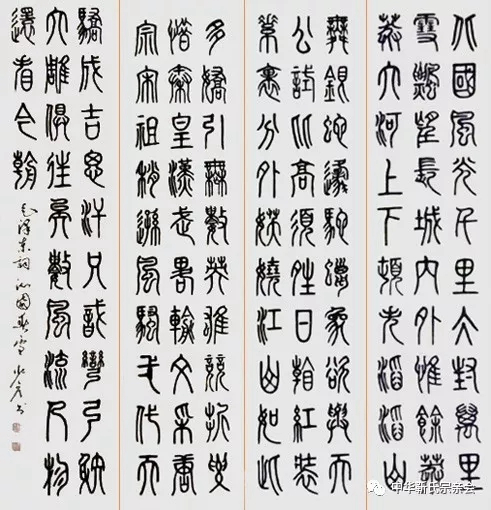 北國風光千里冰封萬里
雪飄望長城內外惟餘莽
莽大河上下頓失滔滔山
舞銀蛇原馳蠟象欲與天
公試比高須晴日看紅裝
素裹分外妖嬈江山如此
多嬌引無數英雄競折腰
惜秦皇漢武略輸文采唐
宗宋祖稍遜風騷一代天
驕成吉思汗只識彎弓射
大雕俱往矣數風流人物
還看今朝
毛澤東詞沁園春雪
中华靳氏宗亲会